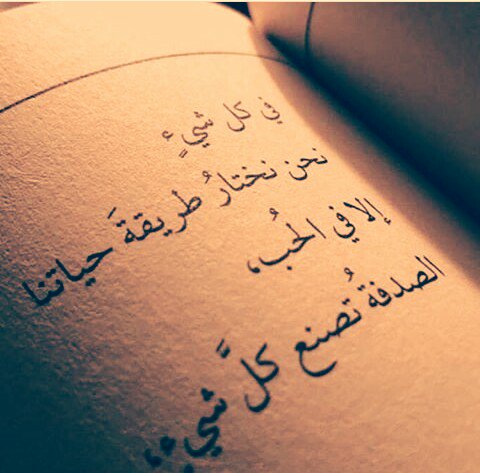 في كل شيءٍ
نحن نختارُ طريقةَ حياتنا
إلا في الحب،
الصدفةُ تُصنع كلَّ شيءٍ